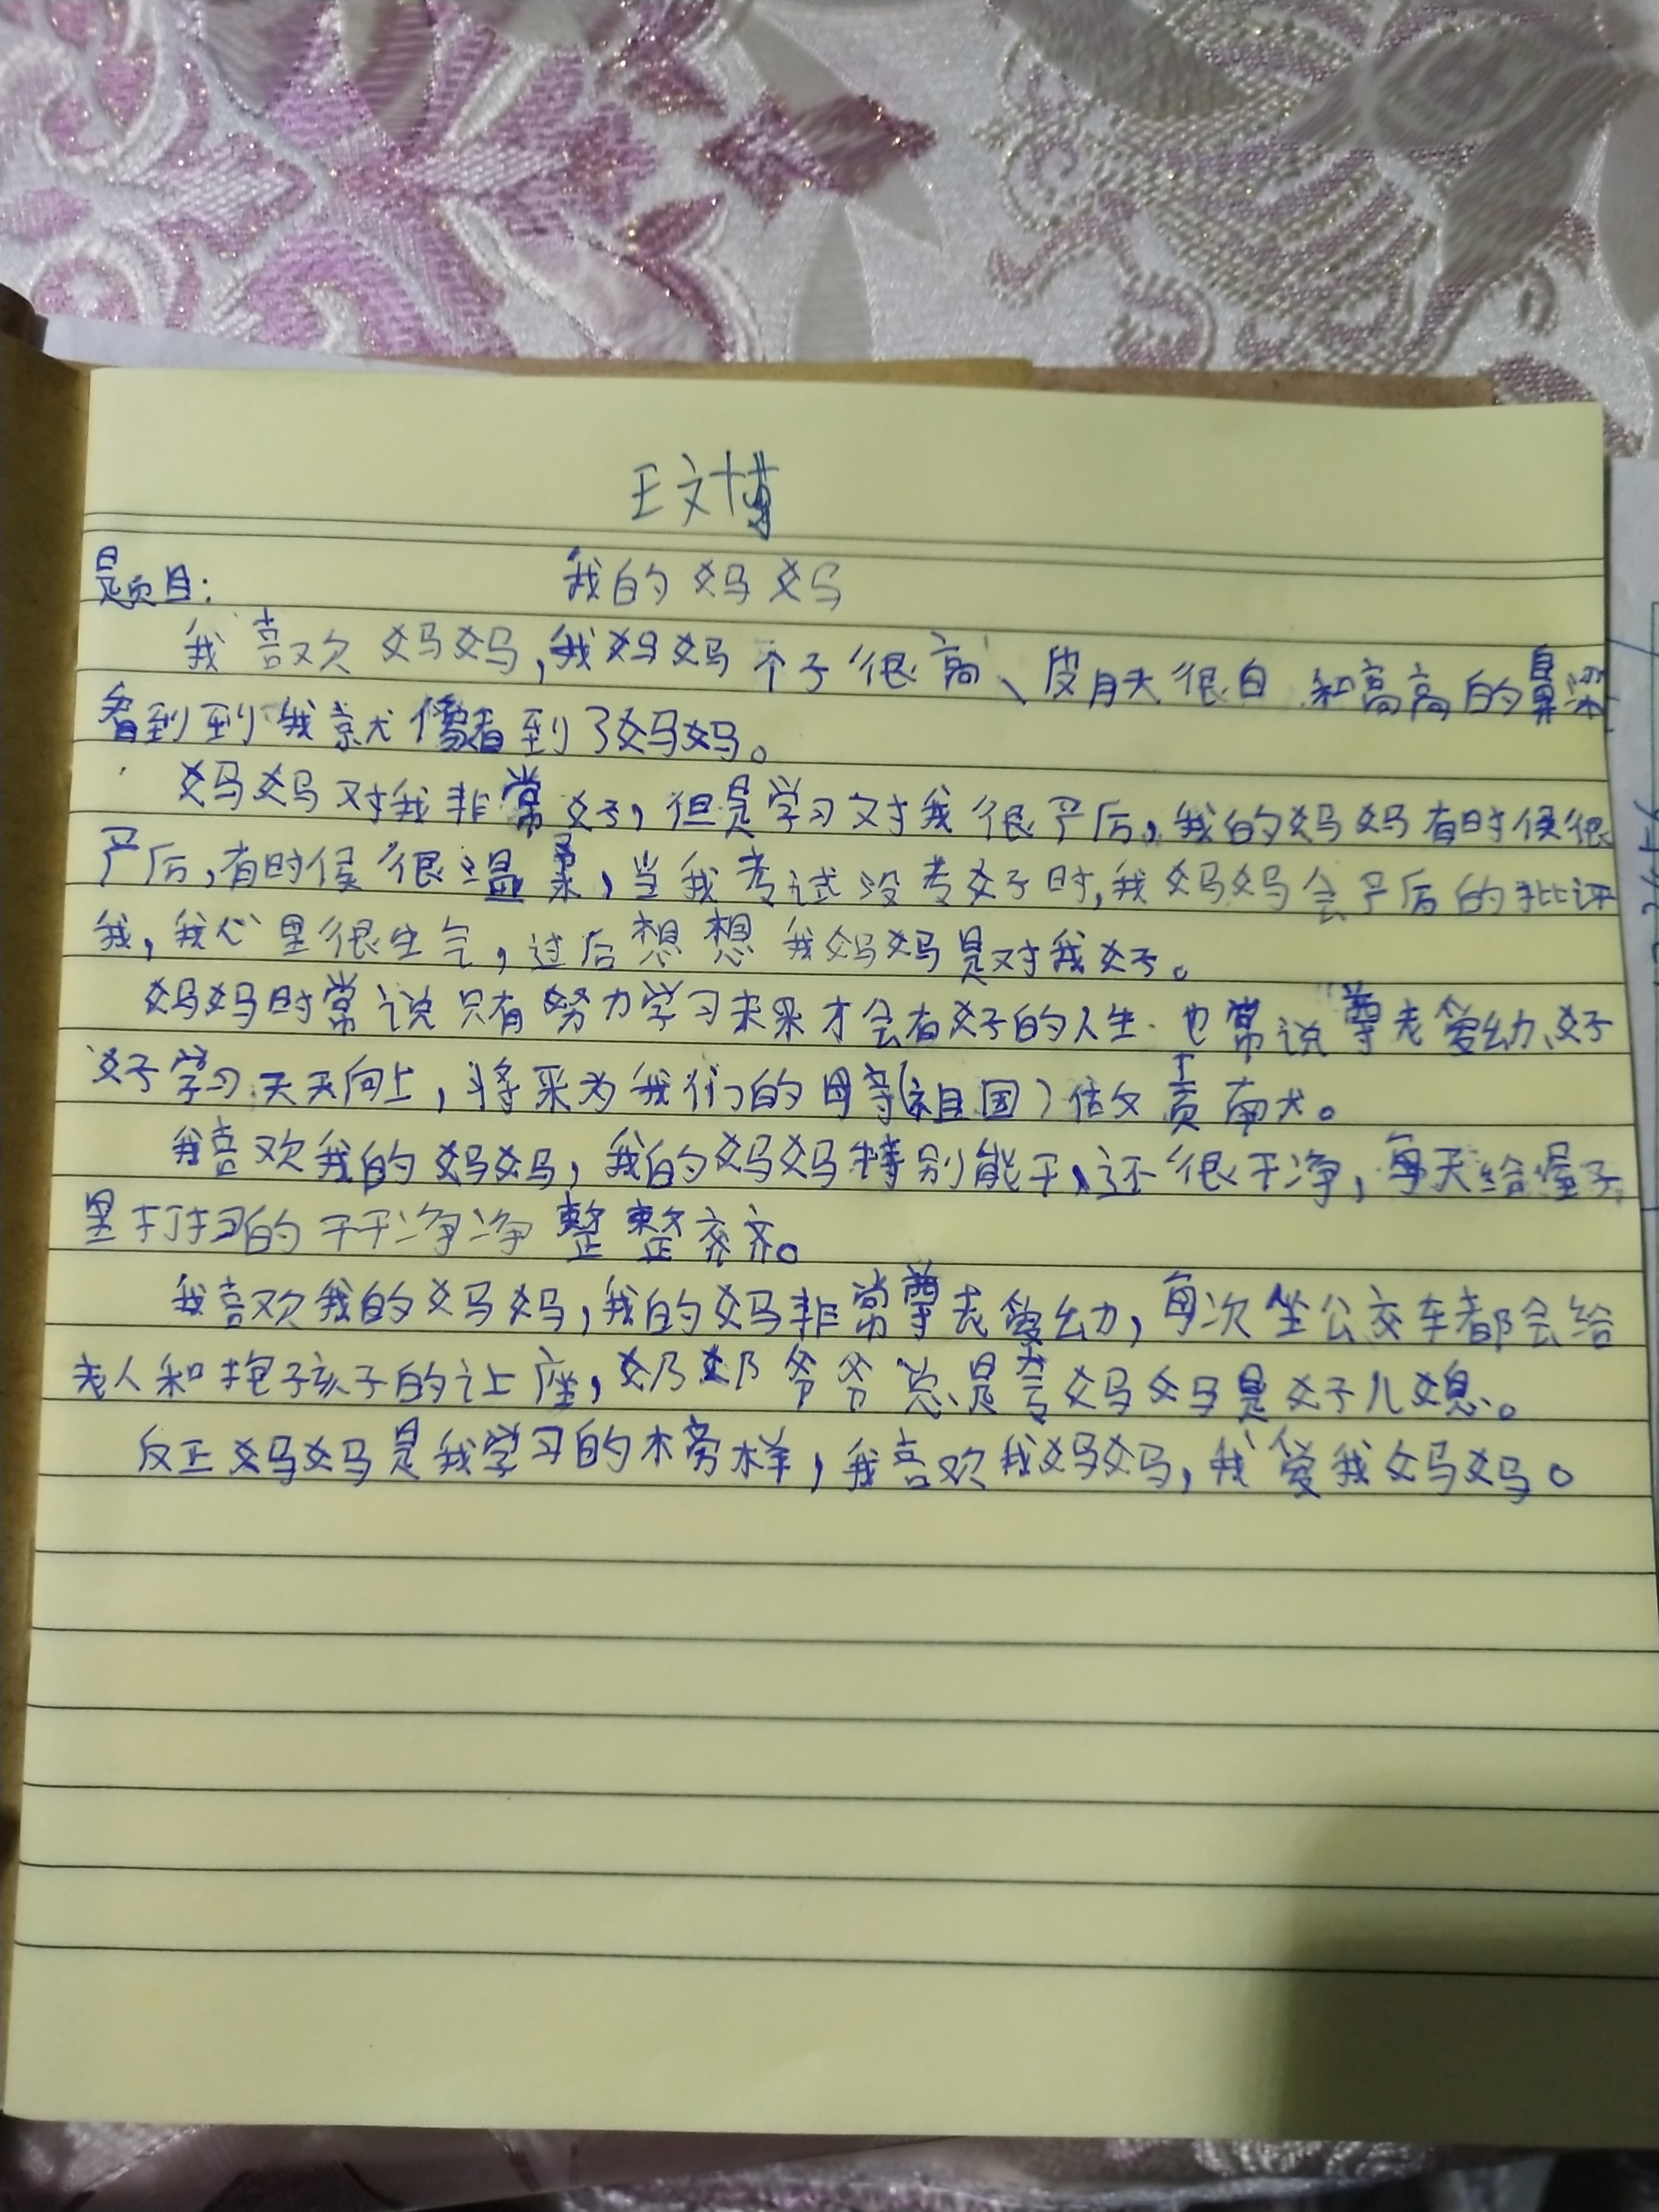 王文博
题目： 我的妈妈
我喜欢妈妈，我妈妈个子很高、皮肤很白和高高的鼻梁
看到到我就像看到了妈妈。
妈妈对我非常好，但是学习对我很严厉，我的妈妈有时候很
严厉，有时候很温柔，当我考试没考好时，我妈妈会严厉的批评
我，我心里很生气，过后想想我妈妈是对我好。
妈妈时常说只有努力学习未来才会有好的人生.也常说尊老爱幼、好
好学习天天向上，将来为我们的母亲(祖国)做文贡献。
我喜欢我的妈妈，我的妈妈特别能干、还很干净，每天给屋子
里打扫的干干净净整整齐齐。
我喜欢我的妈妈，我的妈非常尊老爱幼，每次坐公交车都会给
老人和抱孩子的让座，奶奶爷爷总是夸妈妈是好儿媳。
反正妈妈是我学习的榜样，我喜欢我妈妈，我爱我妈妈。